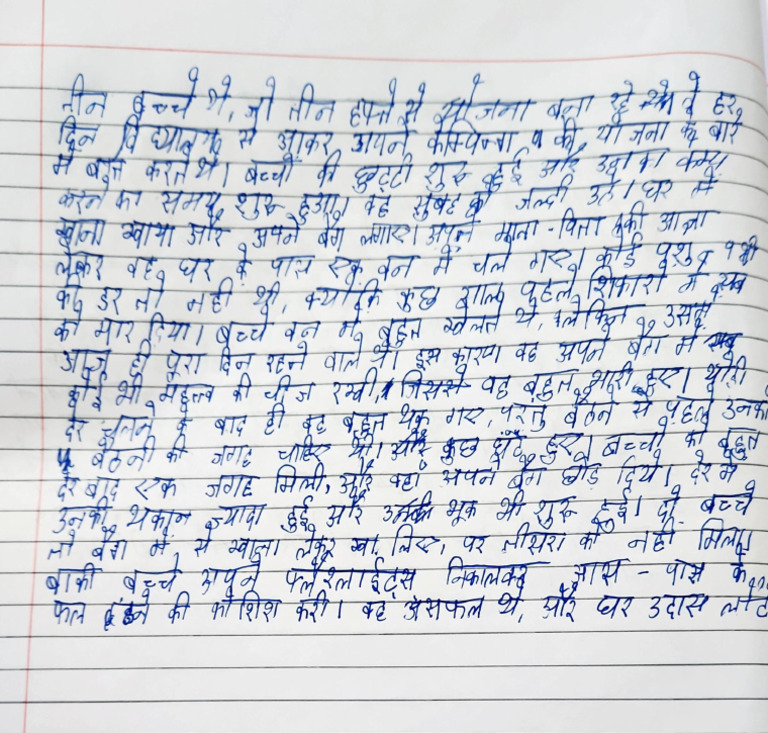 तीन बच्चे थे, जो तीन हफ्ते से योजना बना रहे थे। वे हर
दिन विद्यालय से आकर अपने कैम्पिंग की योजना के बारे
में बात करते थे। बच्चों की छुट्टी शुरू हुई और उनका कैम्प
करने का समय शुरू हुआ। वह सुबह को जल्दी उठे। घर में
खाना खाया और अपने बैग लगाए। अपने माता-पिता की आज्ञा
लेकर वह घर के पास एक वन में चले गए। कोई पशु
की डर तो नहीं थी, क्योंकि कुछ साल पहले शिकारी ने सब
को मार दिया। बच्चे वन में बहुत खेलते थे, लेकिन उसमें
आज ही पूरा दिन रहने वाले थे। इस कारण वह अपने बैग में सब
कोई भी महत्त्व की चीज रखी, जिससे वह बहुत भारी हुए। थोड़ी
देर चलने के बाद ही वह बहुत थक गए, परंतु बैठने से पहले उनको
बैठनी की जगह चाहिए थी। और कुछ घंटे हुए। बच्चों को बहुत
देर बाद एक जगह मिली, और वहाँ अपने बैग छोड़ दिये। देर में
उनकी थकान ज्यादा हुई और उनकी भूक भी शुरू हुई। दो बच्चे
तो बैग में से खाना लेकर खा लिए, पर तीसरा को नहीं मिला।
बाकी बच्चे अपने फ्लैशलाईट्स निकालकर आस-पास के
फल ढूंढने की कोशिश करी। वह असफल थे, और घर उदास लौटे